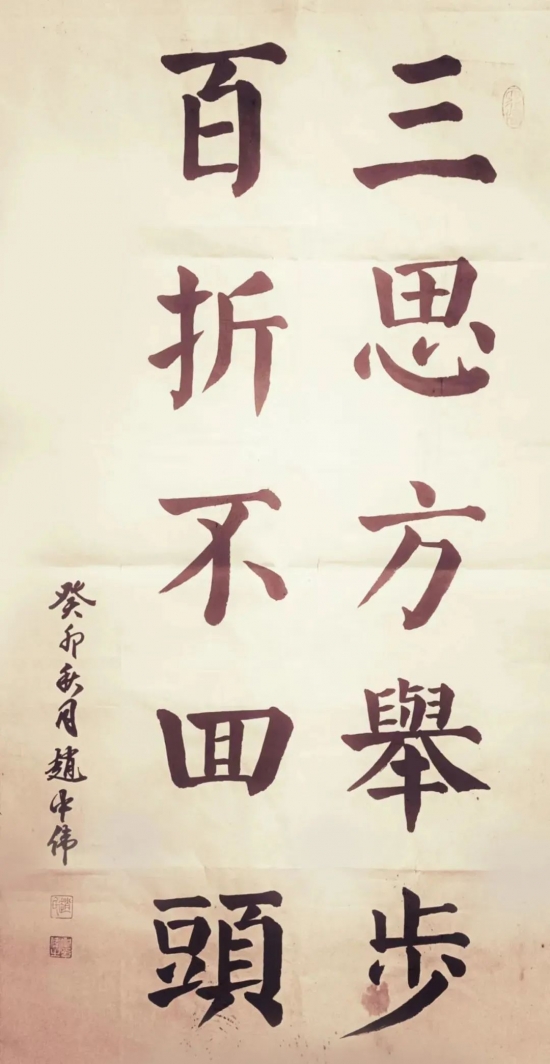 三思方舉步
百折不回頭
癸卯秋月趙中伟